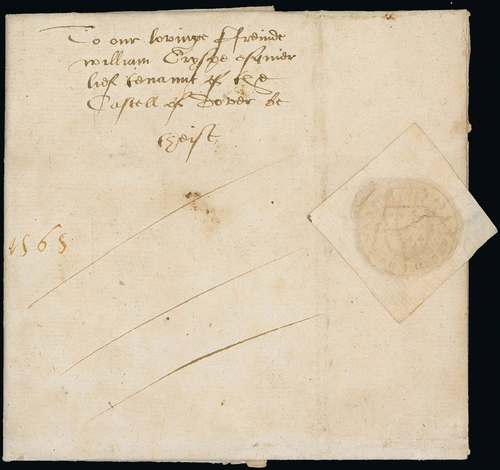 To our lovinge ffreinde
william Cryspe esquier
lief tenannt of the
Castell of Dover be
theis
1565